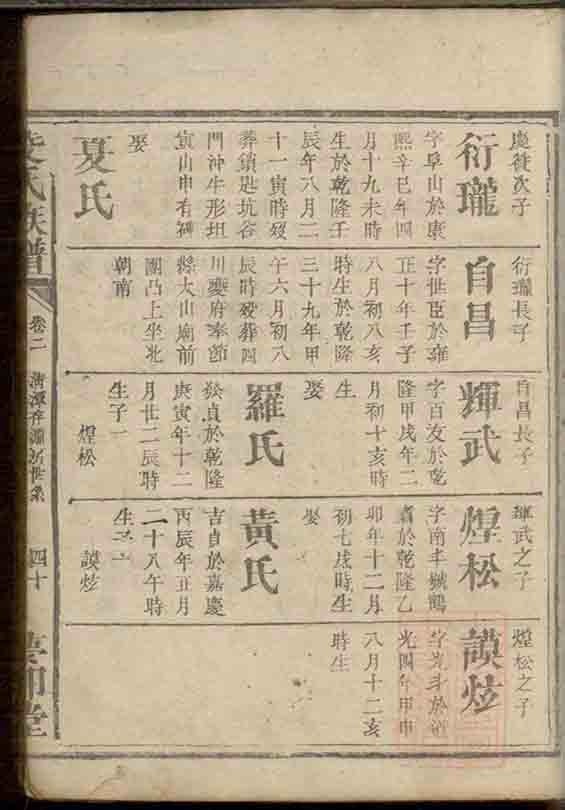 慶從次子
衍瓏
字阜山於康
熙辛巳年四
月十九未時
生於乾隆壬
辰年八月二
十一寅時歿
葬鎖匙坑谷
門沖牛形坦
寅山申有碑
娶
夏氏
衍瓏長子
自昌
字世臣於雍
正十年壬子
八月初八亥
時生於乾隆
三十九年甲
午六月初八
辰時歿葬四
川夔府奉節
縣大山廟前
團凸上坐北
朝南
自昌長子
輝武
字百友於乾
隆甲戌年二
月初十亥時
生
娶
羅氏
於貞於乾隆
庚寅年十二
月廿二辰時
生子一
煌松
輝武之子
煌松
字南丰號鶴
於乾隆乙
卯年十二月
初七戌時生
娶
黃氏
吉貞於嘉慶
丙辰年五月
二十八午時
生子一
謨炫
煌松之子
謨炫
字光斗於道
光四年甲申
八月十二亥
時生
氏族譜
卷二
四十
堂